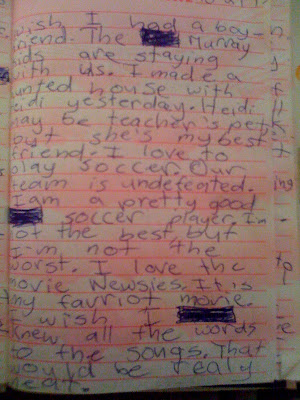 wish I had a boy-
friend. The Murray
kids are staying
with us. I made a
hunted house with
Heidi yesterday. Heidi
may be teacher's pet
but she's my best
friend. I love to
play soccer. Our
team is undefeated.
I am a pretty good
soccer player. I'm
not the best but
I'm not the
worst. I love the
movie Newsies. It is
my favriot movie
I wish I
knew all the words
to the songs. That
would be realy
neat.